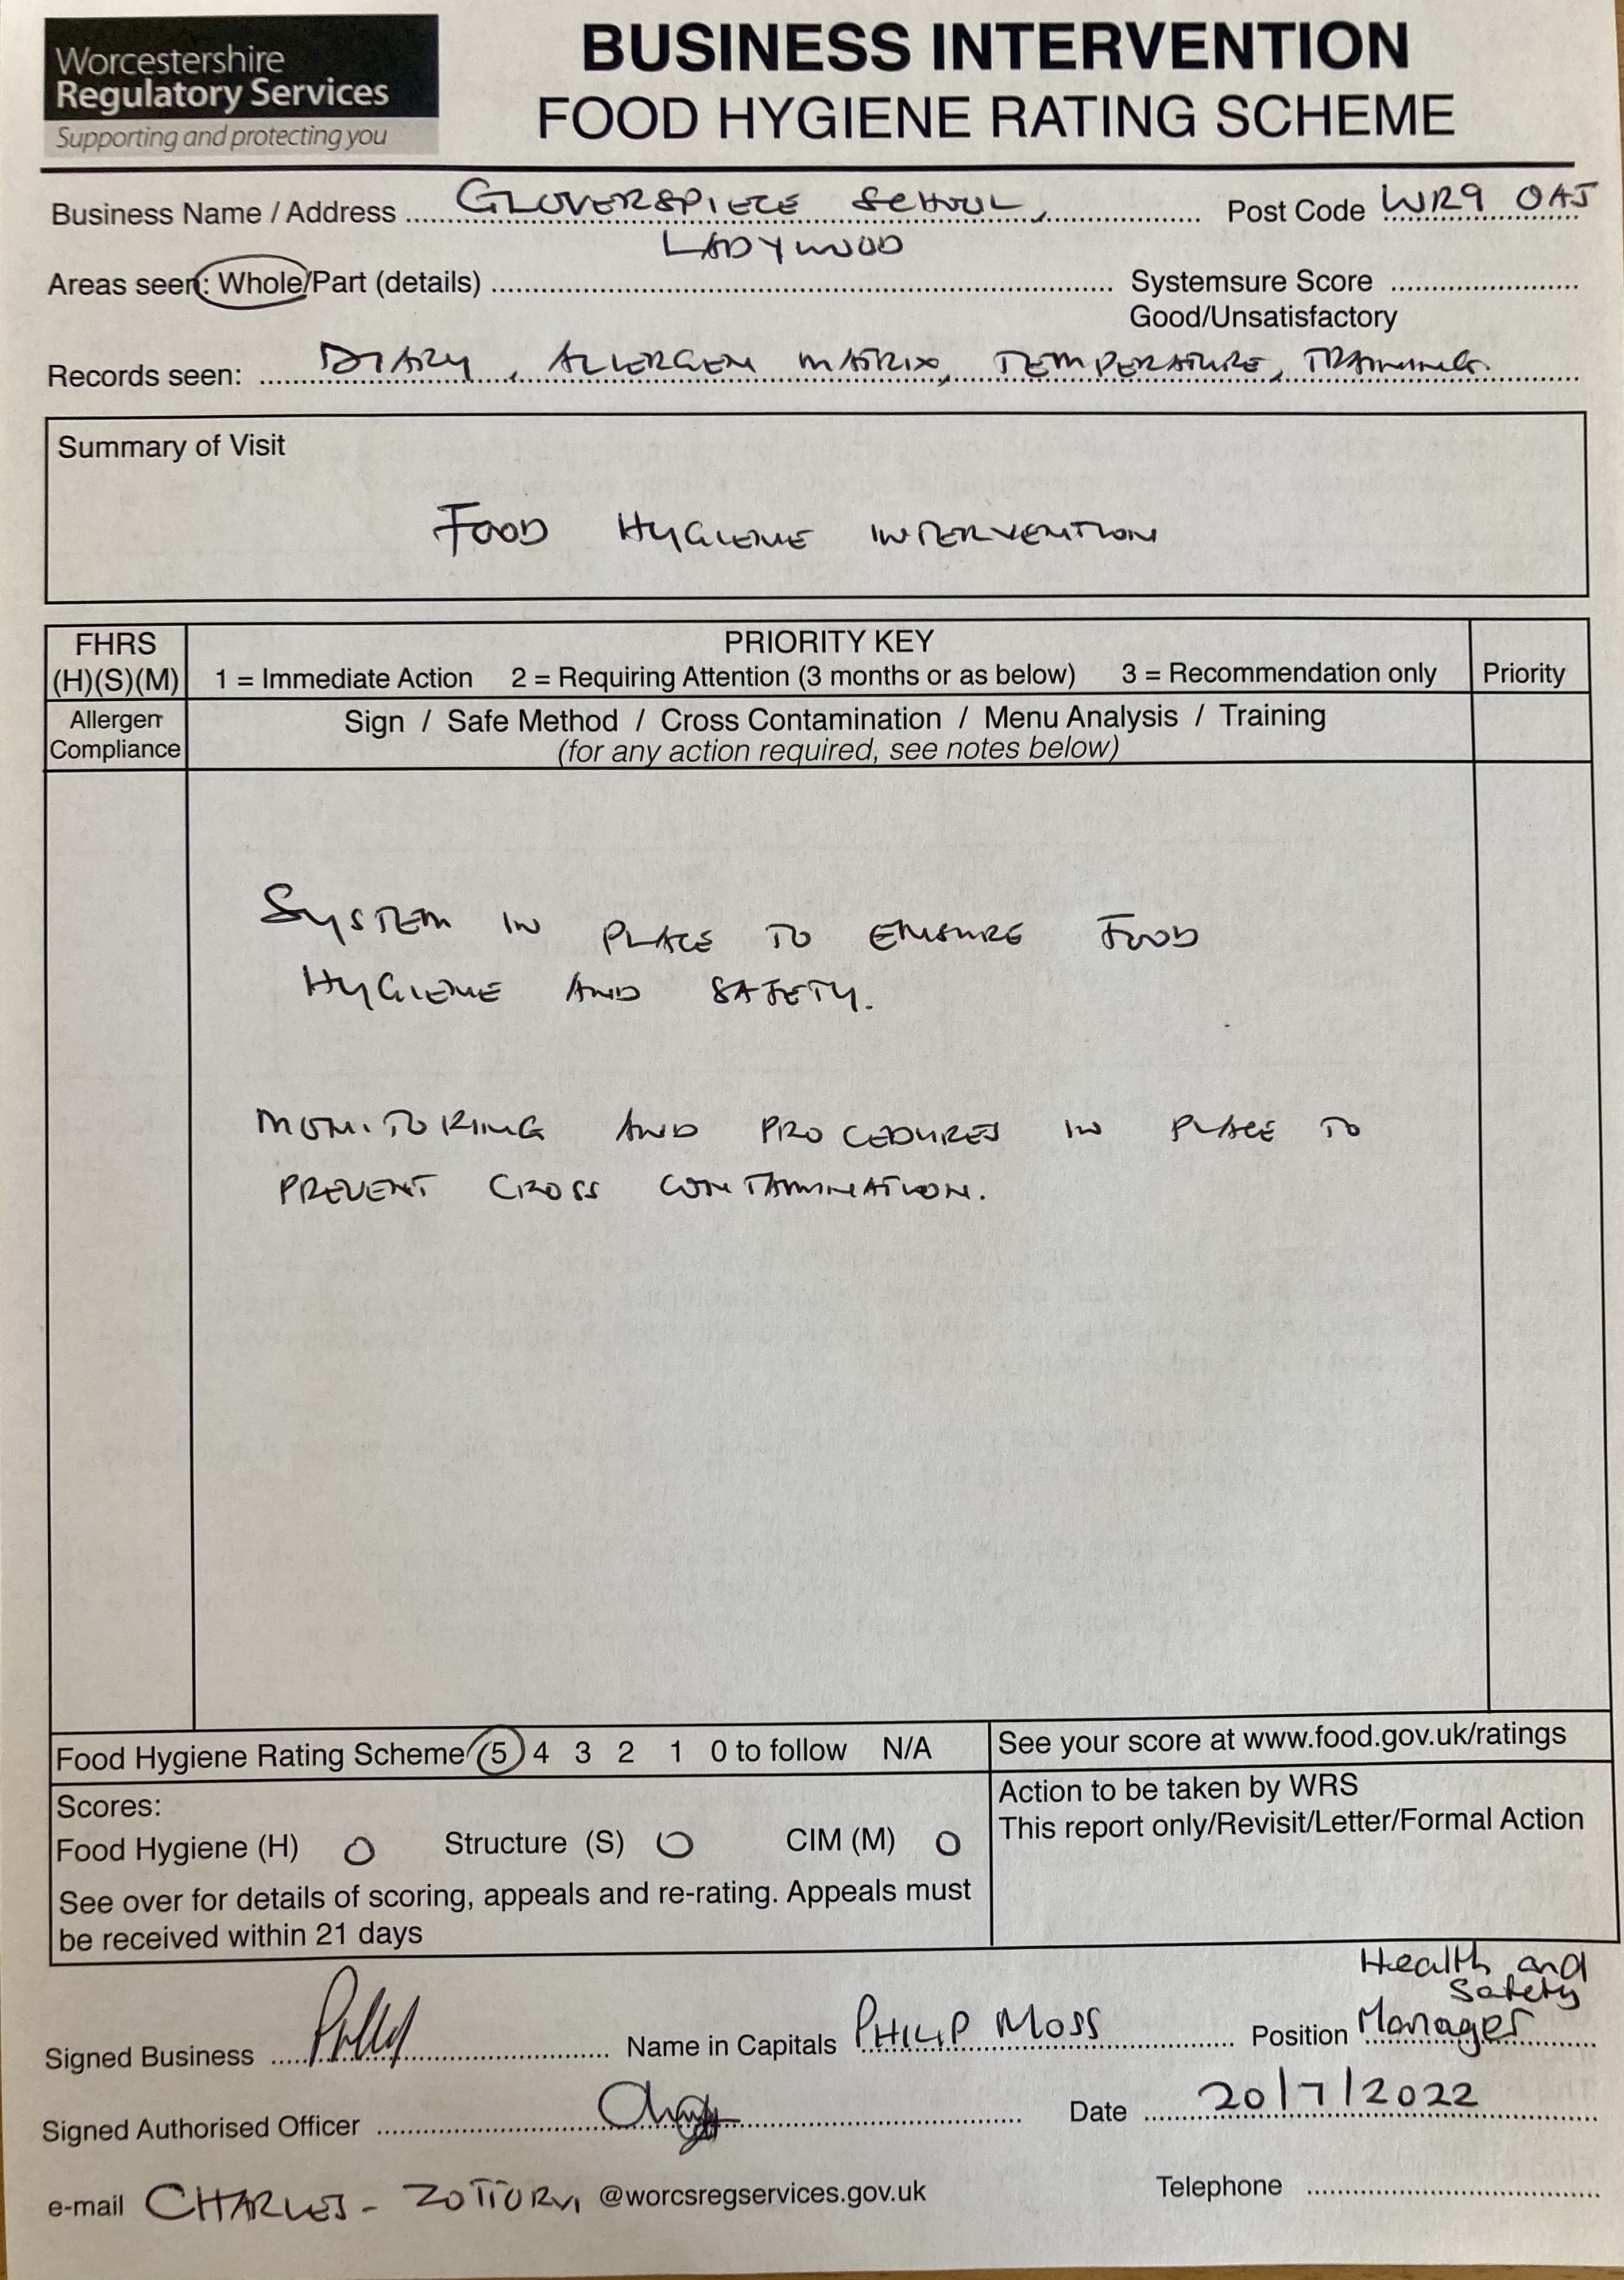 Worcestershire
Regulatory Services
Supporting and protecting you
BUSINESS INTERVENTION
FOOD HYGIENE RATING SCHEME
Business Name / Address GLOVERSPIECE SCHOOL, Post Code WR9 0AJ
LADYWOOD
Areas seen: Whole/Part (details) Systemsure Score
Good/Unsatisfactory
Records seen: DIARY, ALLERGEN MATRIX, TEMPERATURE, TRAINING.
Summary of Visit
FOOD HYGIENE INTERVENTION
FHRS
(H)(S)(M)
PRIORITY KEY
1 = Immediate Action 2 = Requiring Attention (3 months or as below) 3 = Recommendation only
Priority
Allergen
Compliance
Sign / Safe Method / Cross Contamination / Menu Analysis / Training
(for any action required, see notes below)
SYSTEM IN PLACE TO ENSURE FOOD
HYGIENE AND SAFETY.
MONITORING AND PROCEDURES IN PLACE TO
PREVENT CROSS CONTAMINATION.
Food Hygiene Rating Scheme 5 4 3 2 1 0 to follow N/A
See your score at www.food.gov.uk/ratings
Scores:
Food Hygiene (H) 0 Structure (S) 0 CIM (M) 0
See over for details of scoring, appeals and re-rating. Appeals must
be received within 21 days
Action to be taken by WRS
This report only/Revisit/Letter/Formal Action
Health and
Safety
Signed Business Name in Capitals PHILIP MOSS Position Manager
Signed Authorised Officer Date 20/7/2022
e-mail CHARLES- @worcsregservices.gov.uk Telephone